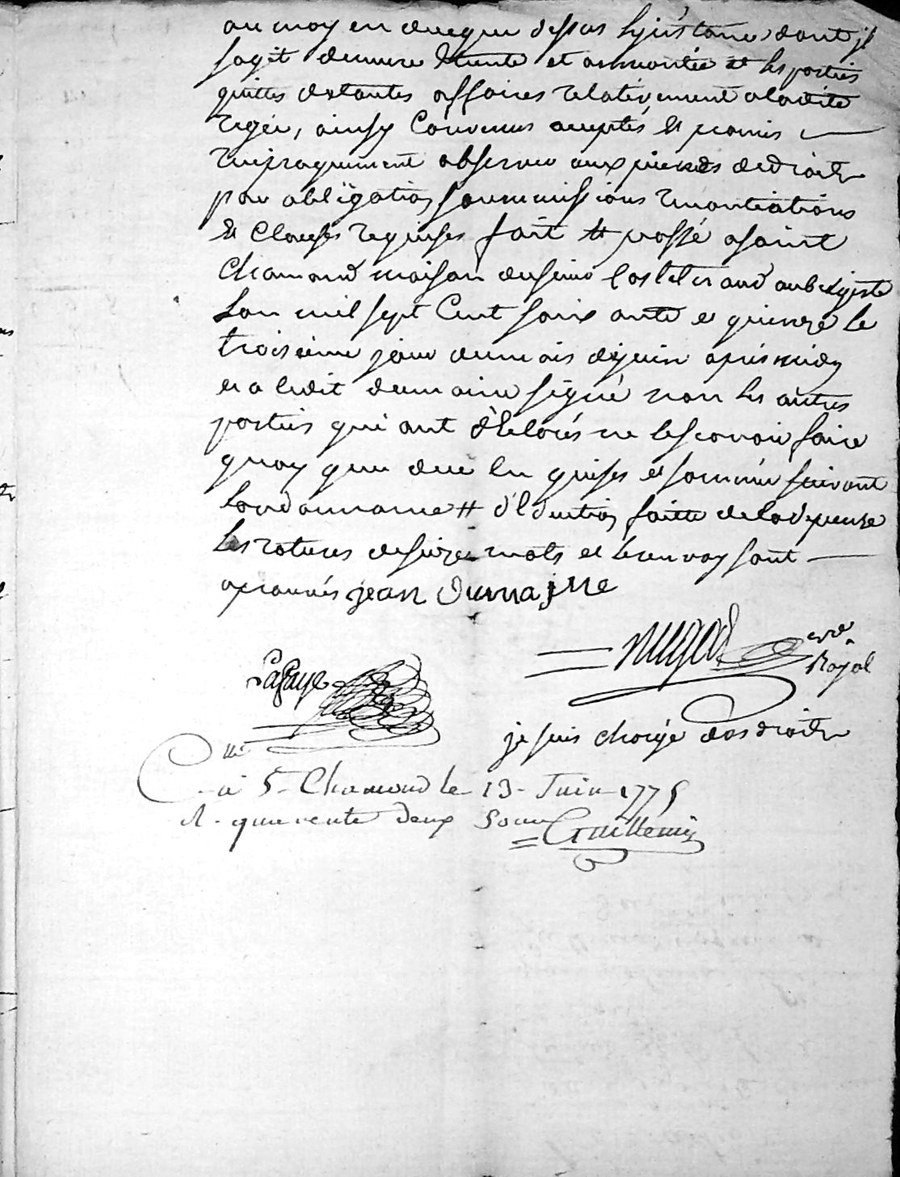 au moyen de ce que dessus l'jnstance dont jl
sagit demeure Eteinte et et les parties
quittes de toutes affaires relativement a ladite
ainsy Convenus acceptés et promis
reciproquement observer aux peines de droit
par obligations soummissions renontiations
et Clauses requises fait et passé a saint
Chamond maison du sieur aubergiste
Lan mil sept Cent soixante et quinze le
troisieme jour du mois de juin apres midy
et a ledit dumaine signé non les autres
parties qui ont déclarés ne le scavoir faire
quoy que de ce en quises et sommés suivant
Lordonnance # faitte de la depense
Les ratures de seize mots et le renvoy sont
aprouvés jean Dumajne
nore
Royal
Lafaye
je suis chargé des droits
C. lle
à St Chamond le 13 Juin 1775
R. quarente deux sous
Guillemin